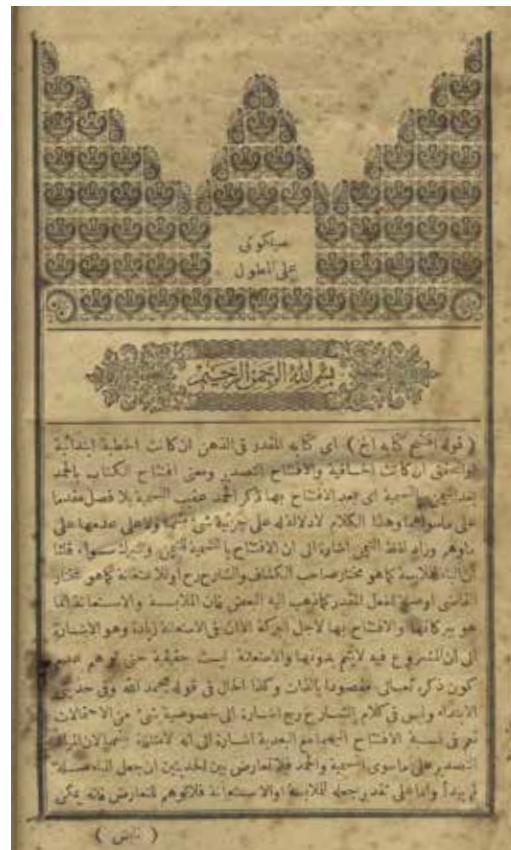 سيالكوتى
على المطول
بسم الله الرحمن الرحيم
( قوله افتتح كتابه الخ ) اى كتابه المقدر فى الذهن ان كانت الخطبة ابتدائية
ان كانت الحاقية والافتتاح التصدير ومعنى افتتاح الكتاب بالحمد
بعد التيمن بالتسمية اى بعد الافتتاح بها ذكر الحمد عقيب التسمية بلا فصل مقدما
على ماسواهما وهذا الكلام لادلالة له على جزئية شئ منهما ولا على عدمها على
ماوهم وزاد لفظ التيمن اشارة الى ان الافتتاح بالتسمية للتيمن والتبرك سواء قلنا
ان الباء للملابسة كما هو مختار صاحب الكشاف والشارح رح او للاستعانة كما هو مختار
القاضى اوصلة لفعل المقدر كما ذهب اليه البعض فان الملابسة والاستعانة انما
هو ببركاتها والافتتاح بها لاجل البركة الا ان فى الاستعانة زيادة وهو الاشارة
الى ان المشروع فيه لايتم بدونها والاستعانة ليست حقيقة حتى توهم عدم
كون ذكره تعالى مقصودا بالذات وكذا الحال فى قوله بحمد الله وفى حديثى
الابتداء وليس فى كلام الشارح رح اشارة الى خصوصية شئ من الاحتمالات
نعم فى نسبة الافتتاح اليهما مع البعدية اشارة الى انه لامنافاة بينهما لان المراد
التصدير على ماسوى التسمية والحمد فلا تعارض بين الحديثين ان جعل الباء صلة
لم يبدأ واما على تقدير جعله للملابسة او الاستعانة فلا توهم للتعارض فانه يمكن